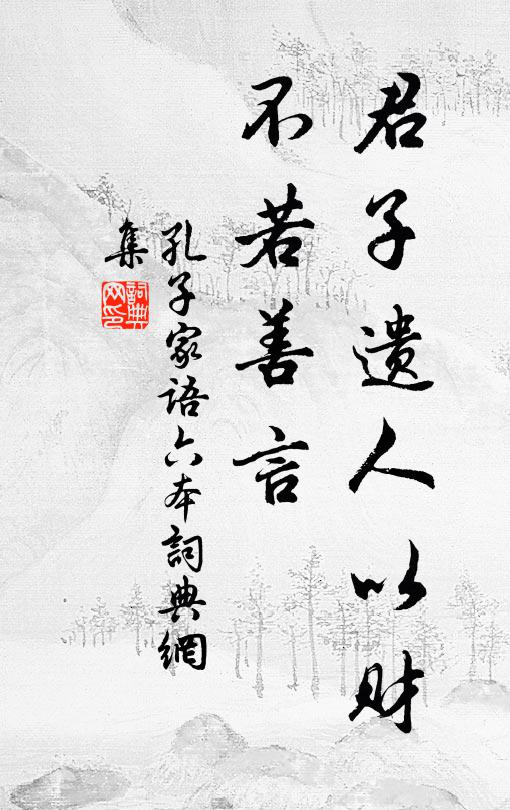 君子遗人以财
不若善言
孔子家语六本詞典網
集
詞典
网印